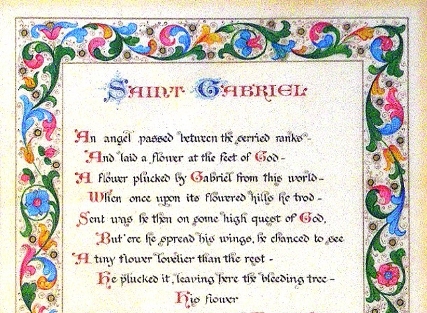 SAINT GABRIEL
An angel passed between the serried ranks -
And laid a flower at the feet of God -
A flower plucked by Gabriel from this world -
When once upon its flowered hills he trod -
Sent was he then on some high quest of God,
But 'ere he spread his wings, he chanced to see
A tiny flower lovelier than the rest -
He plucked it, leaving here the bleeding tree -
His flower